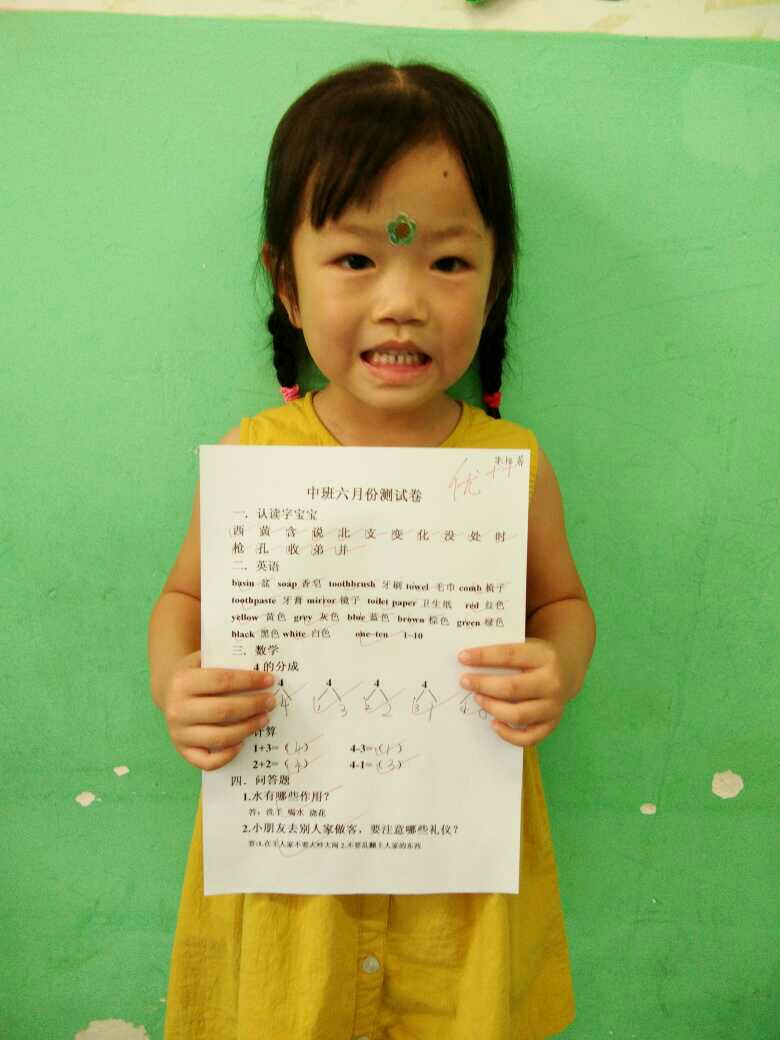 优
中班六月份测试卷
一．认读字宝宝
西 黄 含 说 北 支 变 化 没 处 时
枪 孔 收 弟 并
二．英语
basin 盆 soap 香皂 toothbrush 牙刷 towel 毛巾 comb 梳子
toothpaste 牙膏 mirror 镜子 toilet paper 卫生纸 red 红色
yellow 黄色 grey 灰色 blue 蓝色 brown 棕色 green 绿色
black 黑色 white 白色 one–ten 1–10
三．数学
4 的分成
4 4 4 4
4 1 3 2 2 3 1
计算
1+3=（4） 4-3=（1）
2+2=（4） 4-1=（3）
四．问答题
1.水有哪些作用？
答：洗手 喝水 浇花
2.小朋友去别人家做客，要注意哪些礼仪？
答:1.在主人家不要大吵大闹 2.不要乱翻主人家的东西